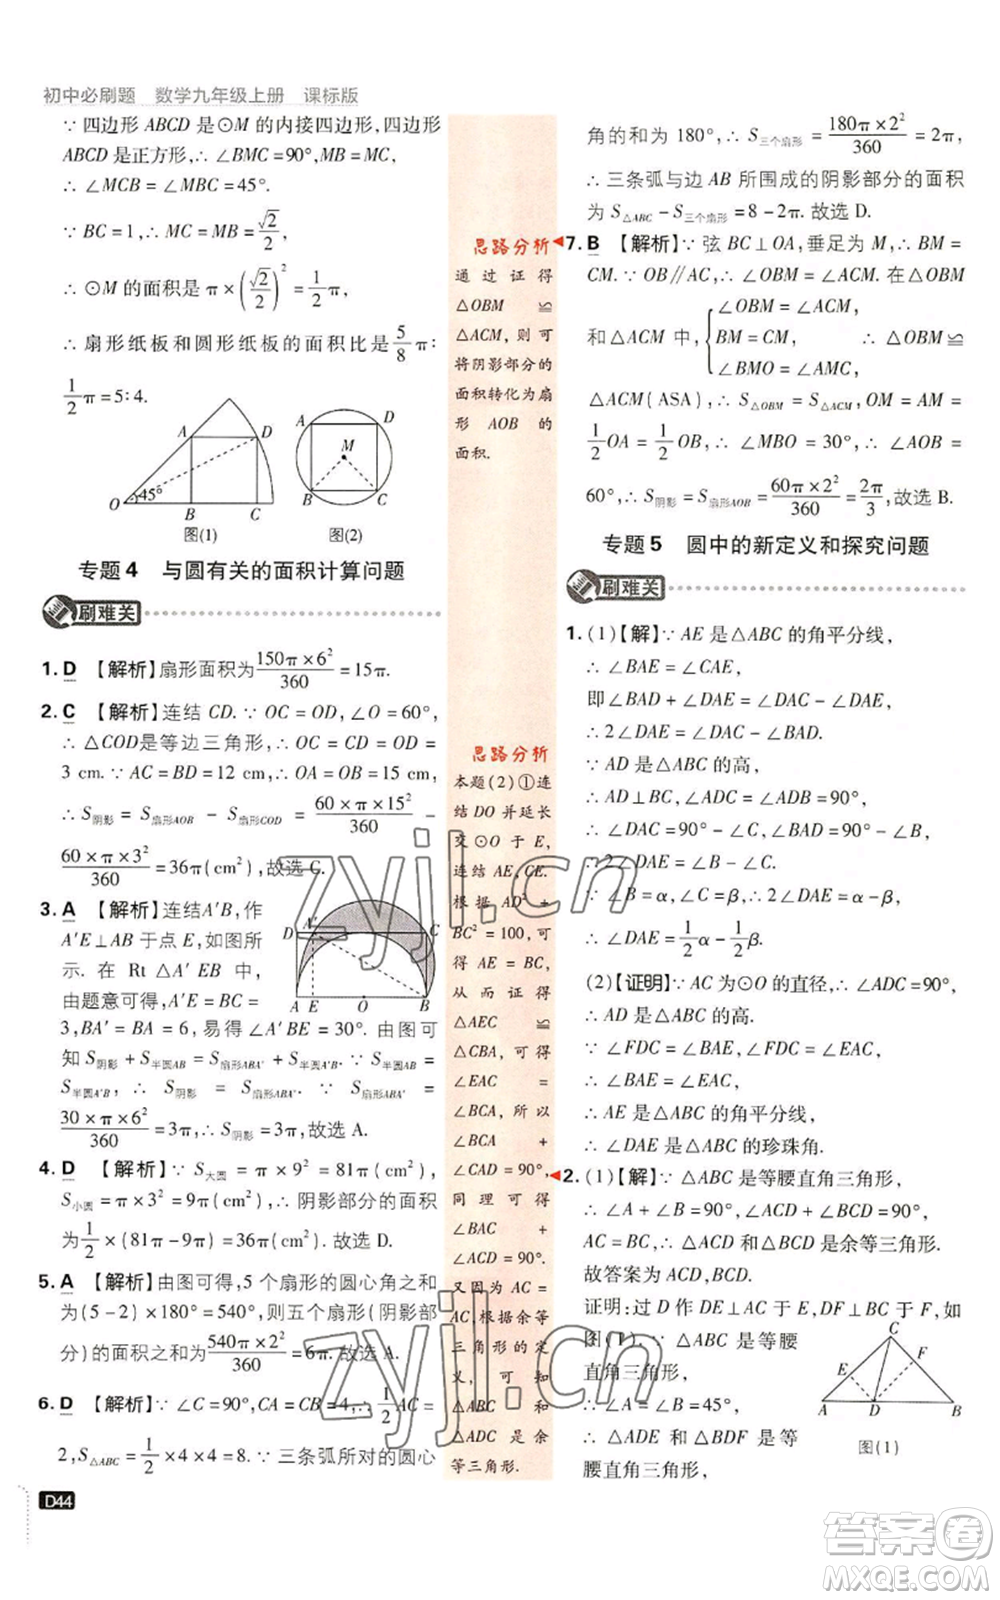 初中必刷题 数学九年级上册 课标版
∵ 四边形 ABCD 是⊙M 的内接四边形,四边形
ABCD 是正方形,∴ ∠BMC = 90°,MB = MC,
∴ ∠MCB = ∠MBC = 45°.
∵ BC = 1,∴ MC = MB = √2/2,
∴ ⊙M 的面积是 π × (√2/2)² = 1/2 π,
∴ 扇形纸板和圆形纸板的面积比是 5/8 π :
1/2 π = 5 : 4.
A D O 45° B C
图(1)
A D M B C
图(2)
专题 4 与圆有关的面积计算问题
刷难关
1. D 【解析】扇形面积为 150π × 6²/360 = 15π.
2. C 【解析】连结 CD. ∵ OC = OD,∠O = 60°,
∴ △COD是等边三角形,∴ OC = OD = CD =
3 cm. ∵ AC = BD = 12 cm,∴ OA = OB = 15 cm,
∴ S阴影 = S扇形AOB − S扇形COD = 60 × π × 15²/360 −
60 × π × 3²/360 = 36π(cm²),故选 C.
3. A 【解析】连结A′B, 作
A′E⊥AB 于点 E,如图所
示. 在 Rt △A′EB 中,
由题意可得,A′E = BC =
3,BA′ = BA = 6,易得∠A′BE = 30°. 由图可
知 S阴影 + S半圆AB = S扇形ABA′ + S半圆A′B. ∵ S半圆AB =
S半圆A′B, ∴ S阴影 = S扇形ABA′. ∵ S扇形ABA′ =
30 × π × 6²/360 = 3π,∴ S阴影 = 3π,故选 A.
D A′ C A E O B
4. D 【解析】∵ S大圆 = π × 9² = 81π(cm²),
S小圆 = π × 3² = 9π(cm²),∴ 阴影部分的面积
为 1/2 × (81π − 9π) = 36π(cm²),故选 D.
5. A 【解析】由图可得,5 个扇形的圆心角之和
为(5 − 2) × 180° = 540°,则五个扇形(阴影部
分)的面积之和为 540π × 2²/360 = 6π. 故选 A.
6. D 【解析】∵ ∠C = 90°,CA = CB = 4,∴ 1/2 AC =
2,S△ABC = 1/2 × 4 × 4 = 8. ∵ 三条弧所对的圆心
D44
思路分析
通过证得
△OBM ≌
△ACM,则可
将阴影部分的
面积转化为扇
形 AOB 的
面积.
思路分析
本题(2)①连
结DO 并延长
交⊙O 于 E,
连结 AE,CE.
根据 AD² +
BC² = 100,可
得 AE = BC,
从而证得
△AEC ≌
△CBA,可得
∠EAC =
∠BCA,所以
∠BCA +
∠CAD = 90°,
同理可得
∠BAC +
∠ACD = 90°.
又因为 AC =
AC,根据余等
三角形的定
义,可知
△ABC 和
△ADC 是余
等三角形.
角的和为 180°,∴ S三个扇形 = 180π × 2²/360 = 2π,
∴ 三条弧与边 AB 所围成的阴影部分的面积
为 S△ABC − S三个扇形 = 8 − 2π. 故选 D.
7. B 【解析】∵ 弦 BC⊥OA,垂足为 M,∴ BM =
CM. ∵ OB∥AC,∴ ∠OBM = ∠ACM. 在△OBM
和△ACM 中, { ∠OBM = ∠ACM, BM = CM, ∠BMO = ∠AMC, ∴ △OBM ≌
△ACM(ASA),∴ S△OBM = S△ACM,OM = AM =
1/2 OA = 1/2 OB,∴ ∠MBO = 30°,∴ ∠AOB =
60°,∴ S阴影 = S扇形AOB = 60π × 2²/360 = 2π/3,故选 B.
专题 5 圆中的新定义和探究问题
刷难关
1. (1)【解】∵ AE 是△ABC 的角平分线,
∴ ∠BAE = ∠CAE,
即∠BAD + ∠DAE = ∠DAC − ∠DAE,
∴ 2∠DAE = ∠DAC − ∠BAD.
∵ AD 是△ABC 的高,
∴ ∠BAD = 90° − ∠B,
∴ ∠DAC = 90° − ∠C,
∴ 2∠DAE = ∠B − ∠C.
∵ ∠B = α,∠C = β,∴ 2∠DAE = α − β,
∴ ∠DAE = 1/2 α − 1/2 β.
(2)【证明】∵ AC 为⊙O 的直径,∴ ∠ADC = 90°,
∴ AD 是△ABC 的高.
∵ ∠FDC = ∠BAE,∠FDC = ∠EAC,
∴ ∠BAE = ∠EAC,
∴ AE 是△ABC 的角平分线,
∴ ∠DAE 是△ABC 的珍珠角.
2. (1)【解】∵ △ABC 是等腰直角三角形,
∴ ∠A + ∠B = 90°,∠ACD + ∠BCD = 90°,
AC = BC,∴ △ACD 和△BCD 是余等三角形.
故答案为 ACD,BCD.
证明:过 D 作 DE⊥AC 于 E,DF⊥BC 于 F,如
图(1). ∵ △ABC 是等腰
直角三角形,
∴ ∠A = ∠B = 45°,
∴ △ADE 和△BDF 是等
腰直角三角形,
C E F A D B
图(1)
zyjl.cn
zyjl.cn
答案卷
MXQE.COM